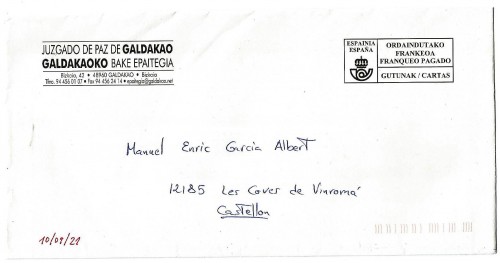 JUZGADO DE PAZ DE GALDAKAO
GALDAKAOKO BAKE EPAITEGIA
Bizkaia, 42 • 48960 GALDAKAO • Bizkaia
Tfno. 94 456 01 07 • Fax 94 456 24 14 • epaitegia@galdakao.net
ESPAINIA
ESPAÑA
ORDAINDUTAKO
FRANKEOA
FRANQUEO PAGADO
GUTUNAK / CARTAS
Manuel Enric García Albert
12185 Les Coves de Vinromá
Castellon
10/09/21